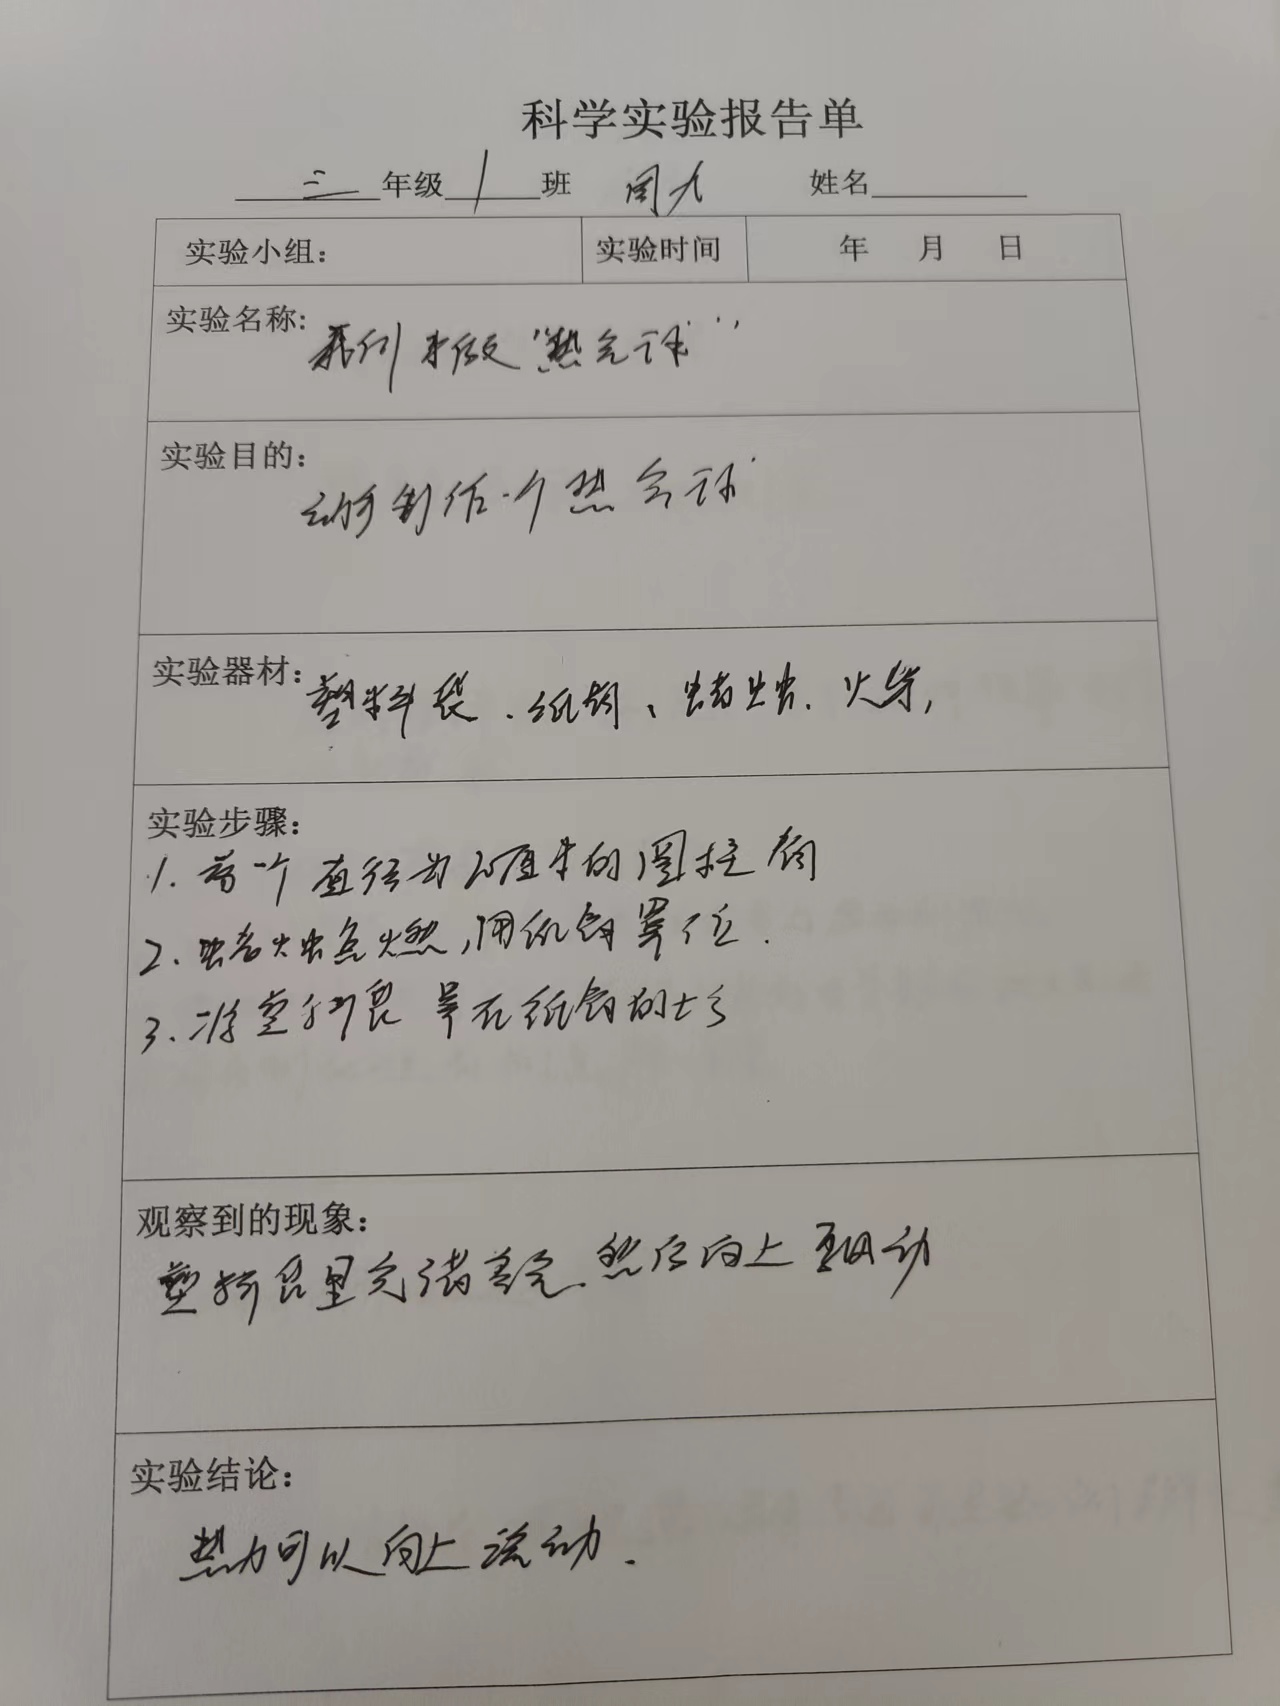 科学实验报告单
三年级1班 周九 姓名
实验小组: 实验时间 年 月 日
实验名称: 我们来做"热气球"
实验目的:
动手制作一个热气球
实验器材: 塑料袋、纸筒、蜡烛、火柴,
实验步骤:
1. 一个直径为厘米的圆柱筒
2. 蜡烛点燃,用纸筒罩住.
3. 将塑料袋罩在纸筒的上
观察到的现象:
塑料袋里充满,然后向上动
实验结论:
热力可以向上流动.